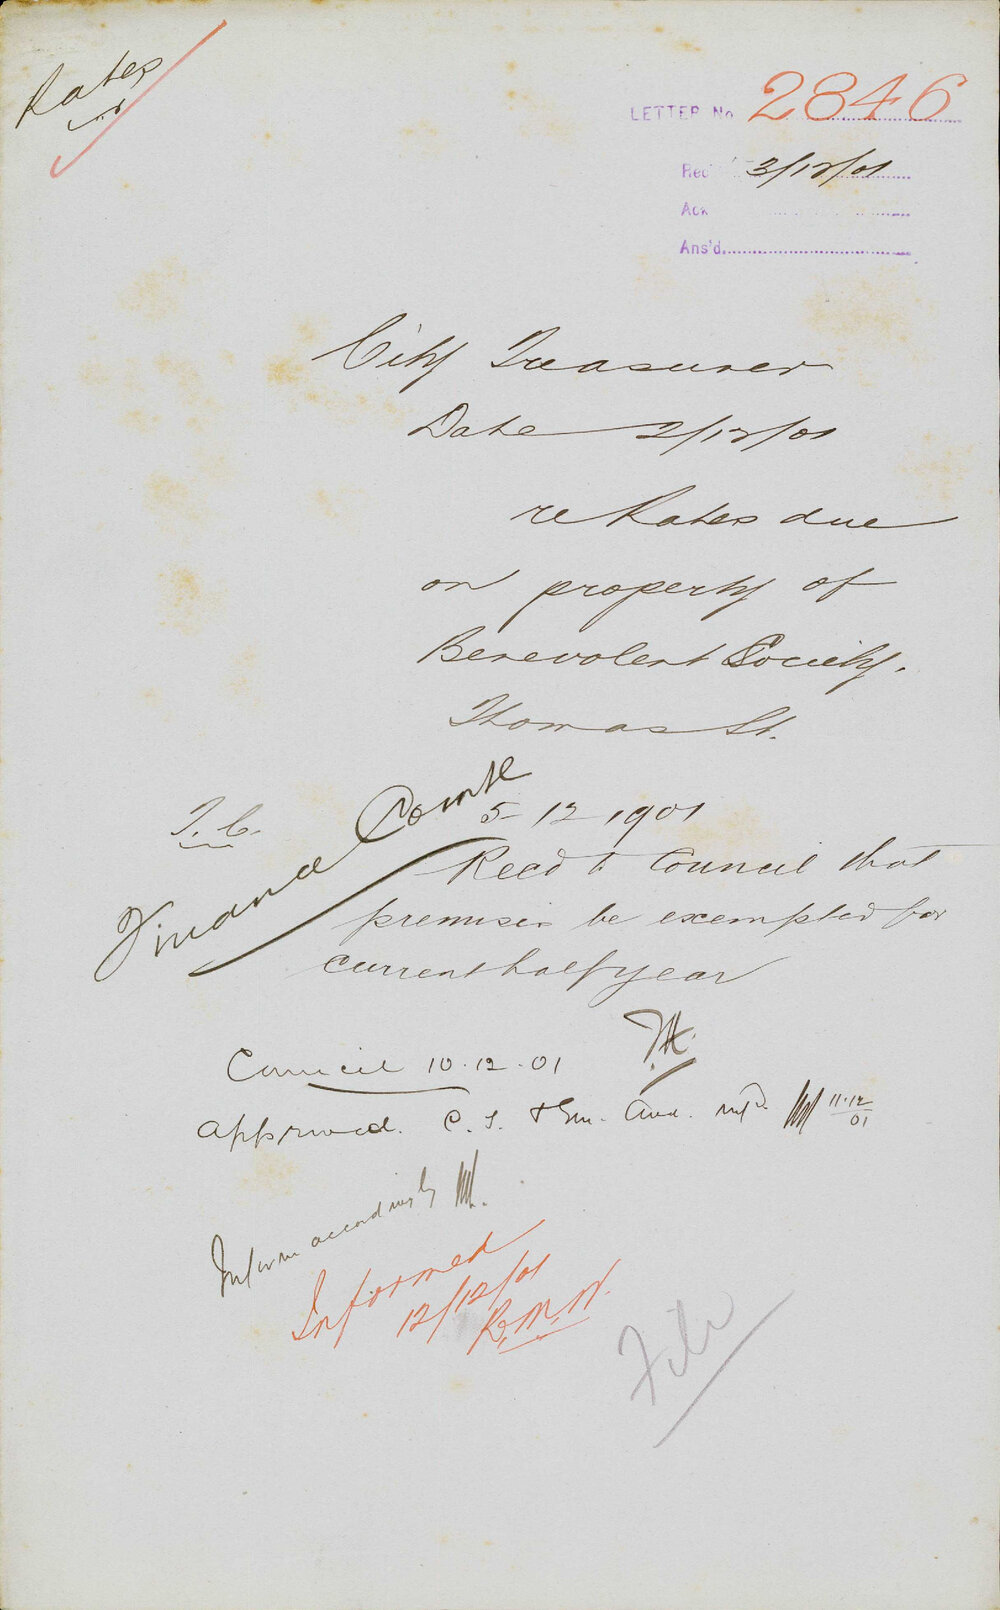 Rates
LETTER No 2846
Rec 3/12/01
Ack
Ans'd
City Treasurer
Date 2/12/01
re Rates due
on property of
Benevolent Society.
Thomas St.
T.C. 5-12 1901
Finance Comte
Recd to Council that
premises be exempted for
current half year
Council 10.12.01
approved. C. T. 11.12
01
Inform accordingly
Informed
12/12/01
R.M.N.
File